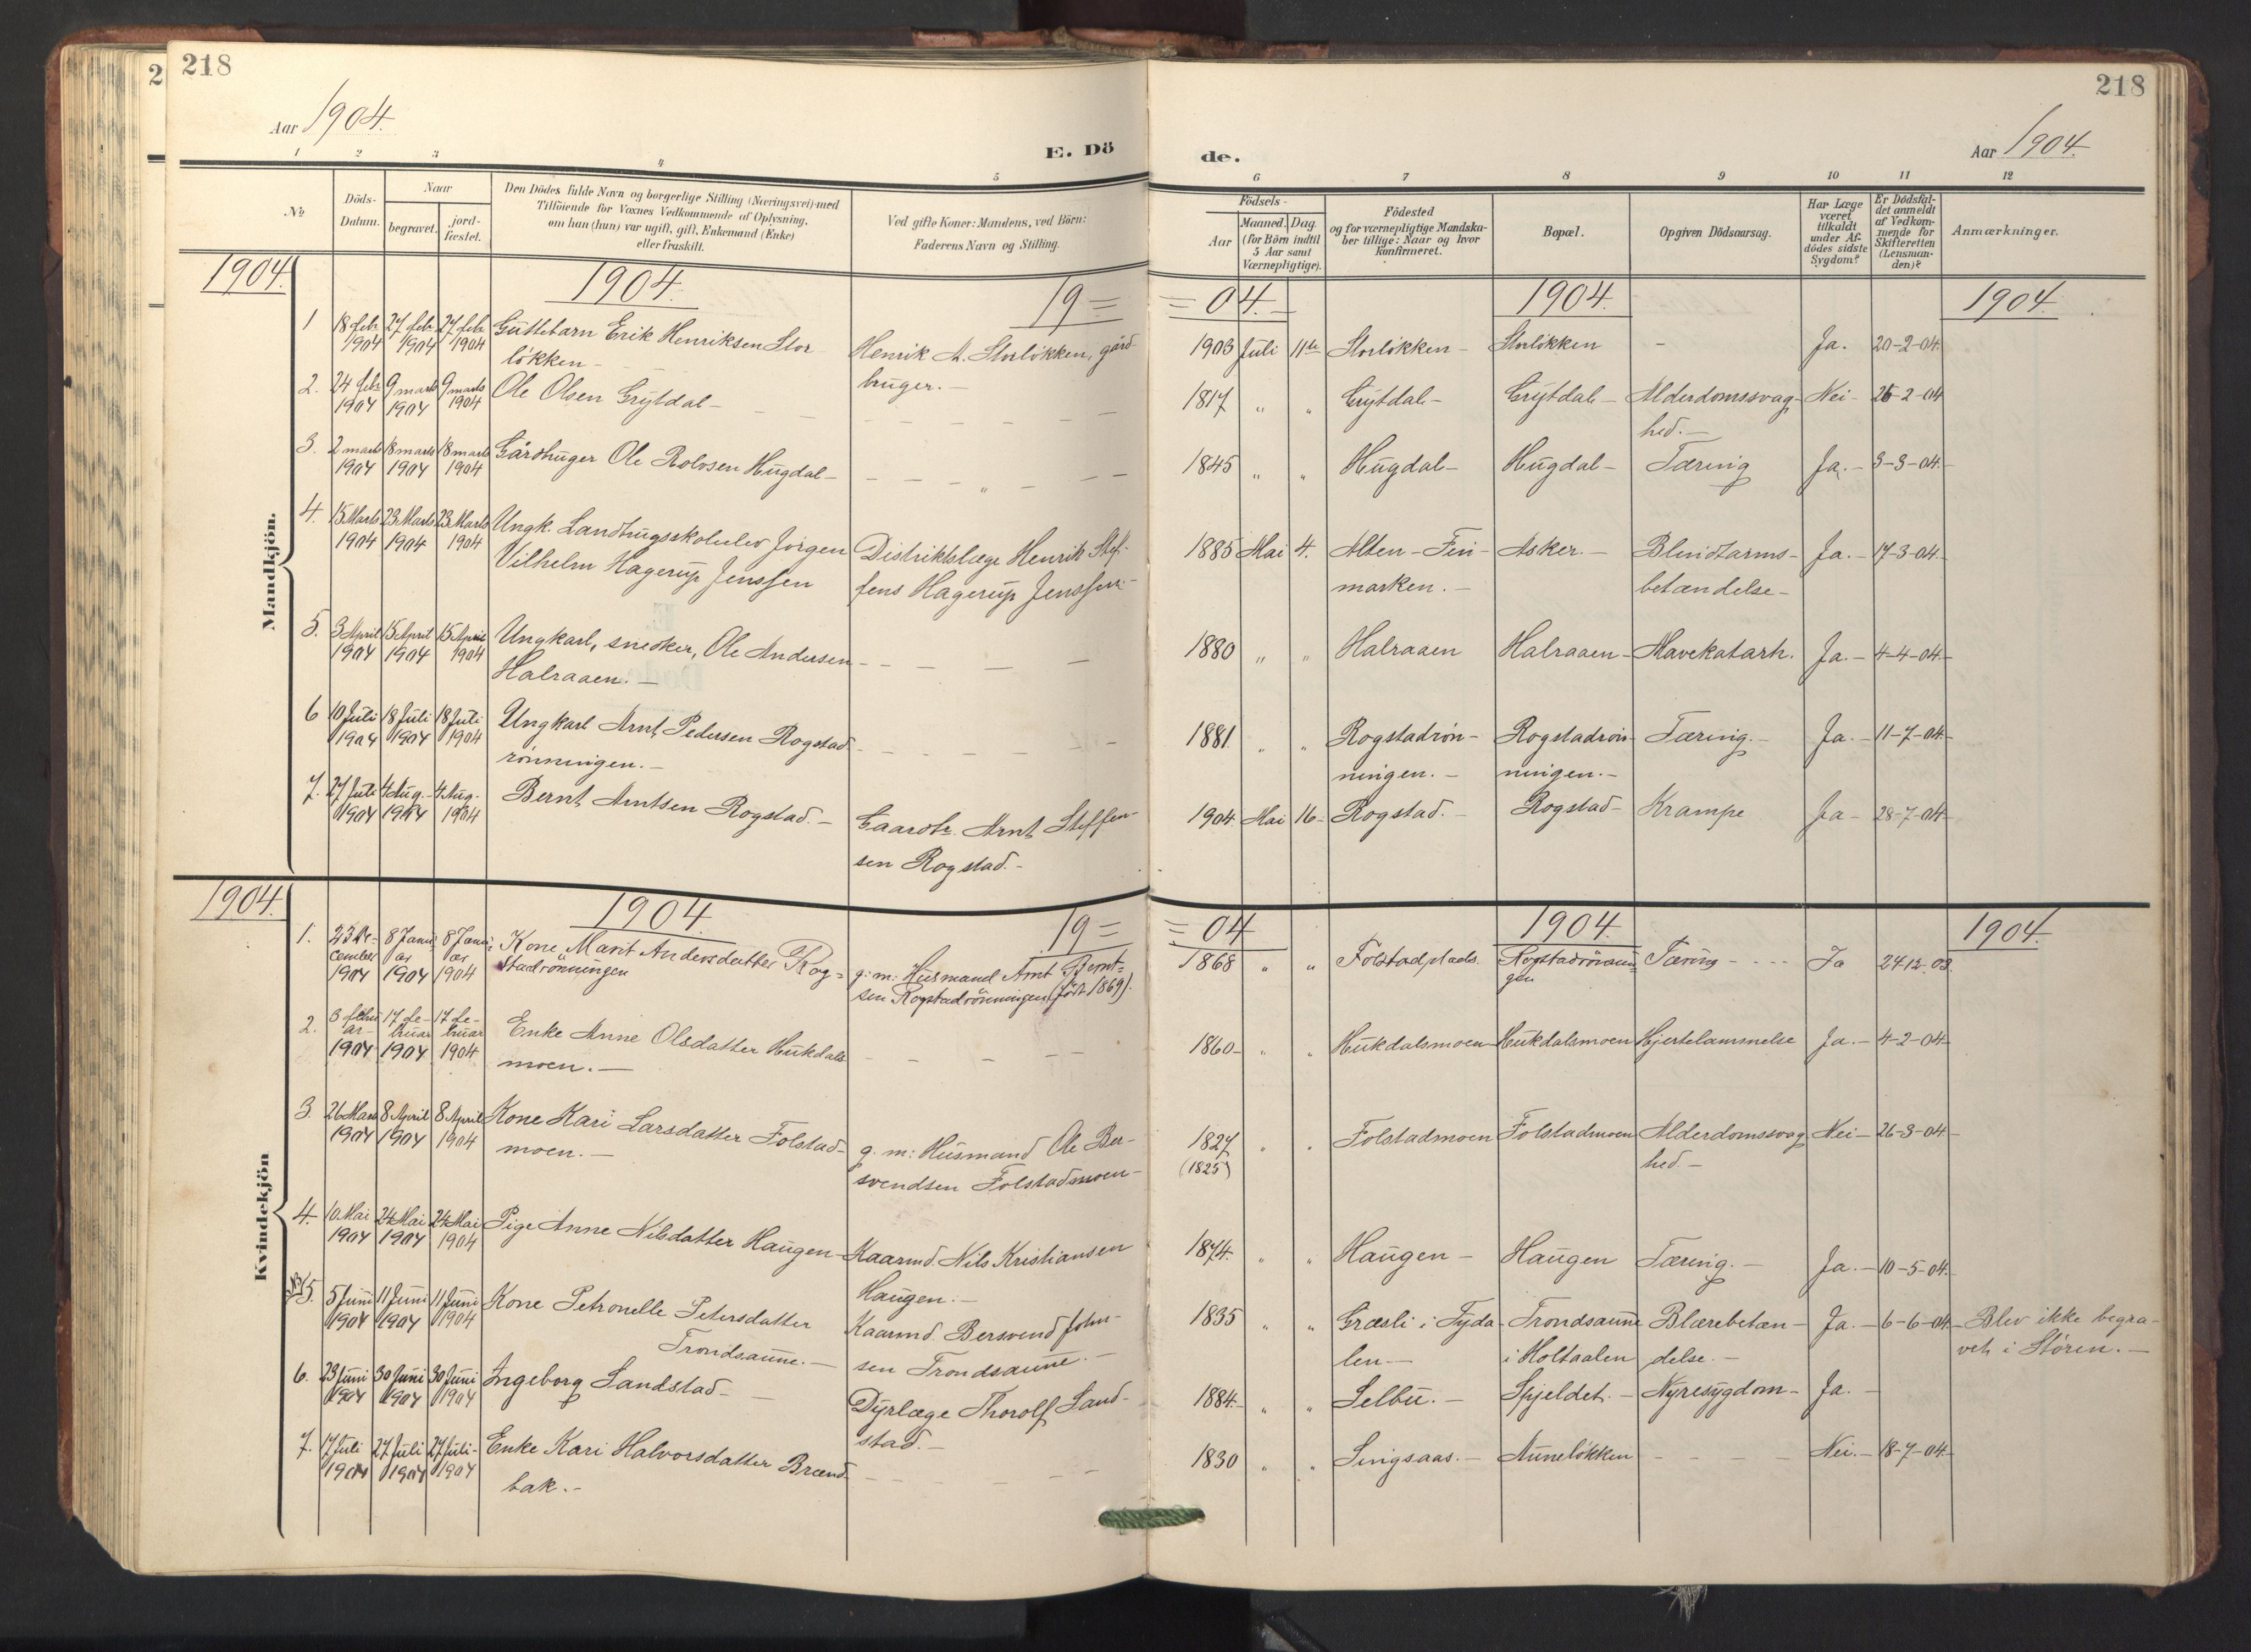 2 218
218
Aar 1904.
E. Dö
de.
Aar 1904.
1 2 3 4 5 6 7 8 9 10 11 12
№
Döds-
Datum.
Naar
begravet.
jord-
fæstet.
Den Dödes fulde Navn og borgerlige Stilling (Næringsvei) med
Tilföiende for Voxnes Vedkommende af Oplysning,
om han (hun) var ugift, gift, Enkemand (Enke)
eller fraskilt.
Ved gifte Koner: Mandens, ved Börn:
Faderens Navn og Stilling.
Födsels-
Aar
Maaned. Dag.
(for Börn indtil
5 Aar samt
Værnepligtige).
Födested
og for værnepligtige Mandska-
ber tillige: Naar og hvor
konfirmeret.
Bopæl.
Opgiven Dödsaarsag.
Har Læge
været
tilkaldt
under Af-
dödes sidste
Sygdom?
Er Dödsfal-
det anmeldt
af Vedkom-
mende for
Skifteretten
(Lensman-
den)?
Anmærkninger.
Mandkjön.
1904. 1904. 19= =04. 1904. 1904.
1 18 feb. 27 feb. 27 feb. Guttebarn Erik Henriksen Stor Henrik A. Storløkken, gård- 1903 Juli 11te Storløkken - Storløkken - Ja. 20-2-04.
1904 1904 1904 løkken - bruger. -
2. 24 feb. 9 marts 9 marts Ole Olsen Grytdal - 1817 " " Grytdal - Grytdal - Alderdomssvag- Nei - 26-2-04
1904 1904 1904 hed. -
3. 2 marts 18 marts 18 marts Gårdbruger Ole Rolvsen Hugdal - " 1845 " " Hugdal - Hugdal - Tæring Ja. - 3-3-04.
1904 1904 1904
4. 15 Marts 23 Marts 23 Marts Ungk. Landbrugsskoleelev Jørgen Distriktslæge Henrik Stef- 1885 Mai 4. Alten - Fin- Asker. - Blindtarms- Ja. - 17-3-04.
1904 1904 1904 Vilhelm Hagerup Jenssen fens Hagerup Jenssen. - marken. - betændelse -
5. 3 April 15 April 15 April Ungkarl, snedker, Ole Andersen - 1880 " " Halraaen Halraaen - Mavekatarh. Ja. - 4-4-04.
1904 1904 1904 Halraaen. -
6 10 Juli 18 Juli 18 Juli Ungkarl Arnt Pedersen Rogstad- 1881 " " Rogstadrøn- Rogstadrøn- Tæring. - Ja. - 11-7-04
1904 1904 1904 rønningen. - ningen. - ningen. -
7. 27 Juli 4 Aug. 4 Aug. Bernt Arntsen Rogstad. - Gaardbr. Arnt Steffen- 1904 Mai 16 - Rogstad. - Rogstad - Krampe Ja - 28-7-04
1904 1904 1904 sen Rogstad. -
Kvindekjön
1904. 1904. 19= =04 1904. 1904.
1. 23 De- 8 Janu 8 Janu Kone Marit Andersdatter Rog= g. m. Husmand Arnt Bernt= 1868 " " Folstadplads. Rogstadrönnin Tæring - Ja 24.12.03.
cember ar ar stadrönningen sen Rogstadrönningen (født 1869). gen
1904 1904 1904
2. 3 febru 17 fe- 17 fe- Enke Anne Olsdatter Hukdals 1860 - " " Hukdalsmoen Hukdalsmoen Hjertelammelse Ja. - 4-2-04
ar- bruar bruar moen. -
1904 1904 1904
3. 26 Mars 8 April 8 April Kone Kari Larsdatter Folstad- g. m: Husmand Ole Ber- 1827 " " Folstadmoen Folstadmoen Alderdomssvag Nei - 26-3-04
1904 1904 1904 moen. - svendsen Folstadmoen - (1825) hed. -
4. 10 Mai 24 Mai 24 Mai Pige Anne Nilsdatter Haugen - Kaarmd. Nils Kristiansen 1874. " " Haugen - Haugen Tæring. - Ja. - 10-5-04.
1904 1904 1904 Haugen. -
5. 5 Juni 11 Juni 11 Juni Kone Petronelle Petersdatter Kaarmd. Bersvend John- 1835 " " Græsli i Tyda- Trondsaune Blærebetæn- Ja. - 6-6-04. Blev ikke begra-
1904 1904 1904 Trondsaune. - sen Trondsaune. - len - i Holtaalen delse. - vet i Støren. -
6. 23 Juni 30 Juni 30 Juni Ingeborg Sandstad - Dyrlæge Thorolf Sand- 1884 - " " Selbu. - Spjeldet. - Nyresygdom - Ja. -
1904 1904 1904 stad. -
7. 17 Juli 27 Juli 27 Juli - Enke Kari Halvorsdatter Brænd- 1830 " " Singsaas. - Auneløkken - Nei. - 18-7-04
1904 1904 1904 bak. -